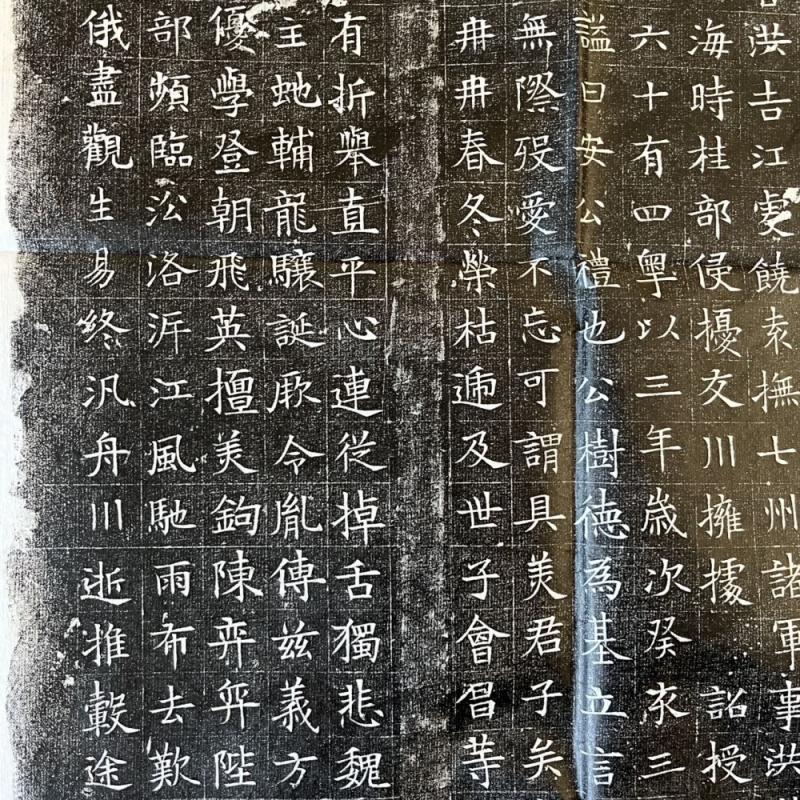 洪吉江虔饒袁撫七州諸軍事洪
海時桂部侵擾交川擁據 詔授
六十有四粤以三年歲次癸亥三
謚曰安公禮也公樹德為基立言
無際歿愛不忘可謂具美君子矣
冉冉春冬榮枯遞及世子會昌等
有折舉直平心連從掉舌獨悲魏
主虵輔龍驤誕厥令胤傳兹義方
優學登朝飛英擅美鉤陳弈弈陛
部頻臨㳂洛汧江風馳雨布去歎
俄盡觀生易終汎舟川逝推轂途